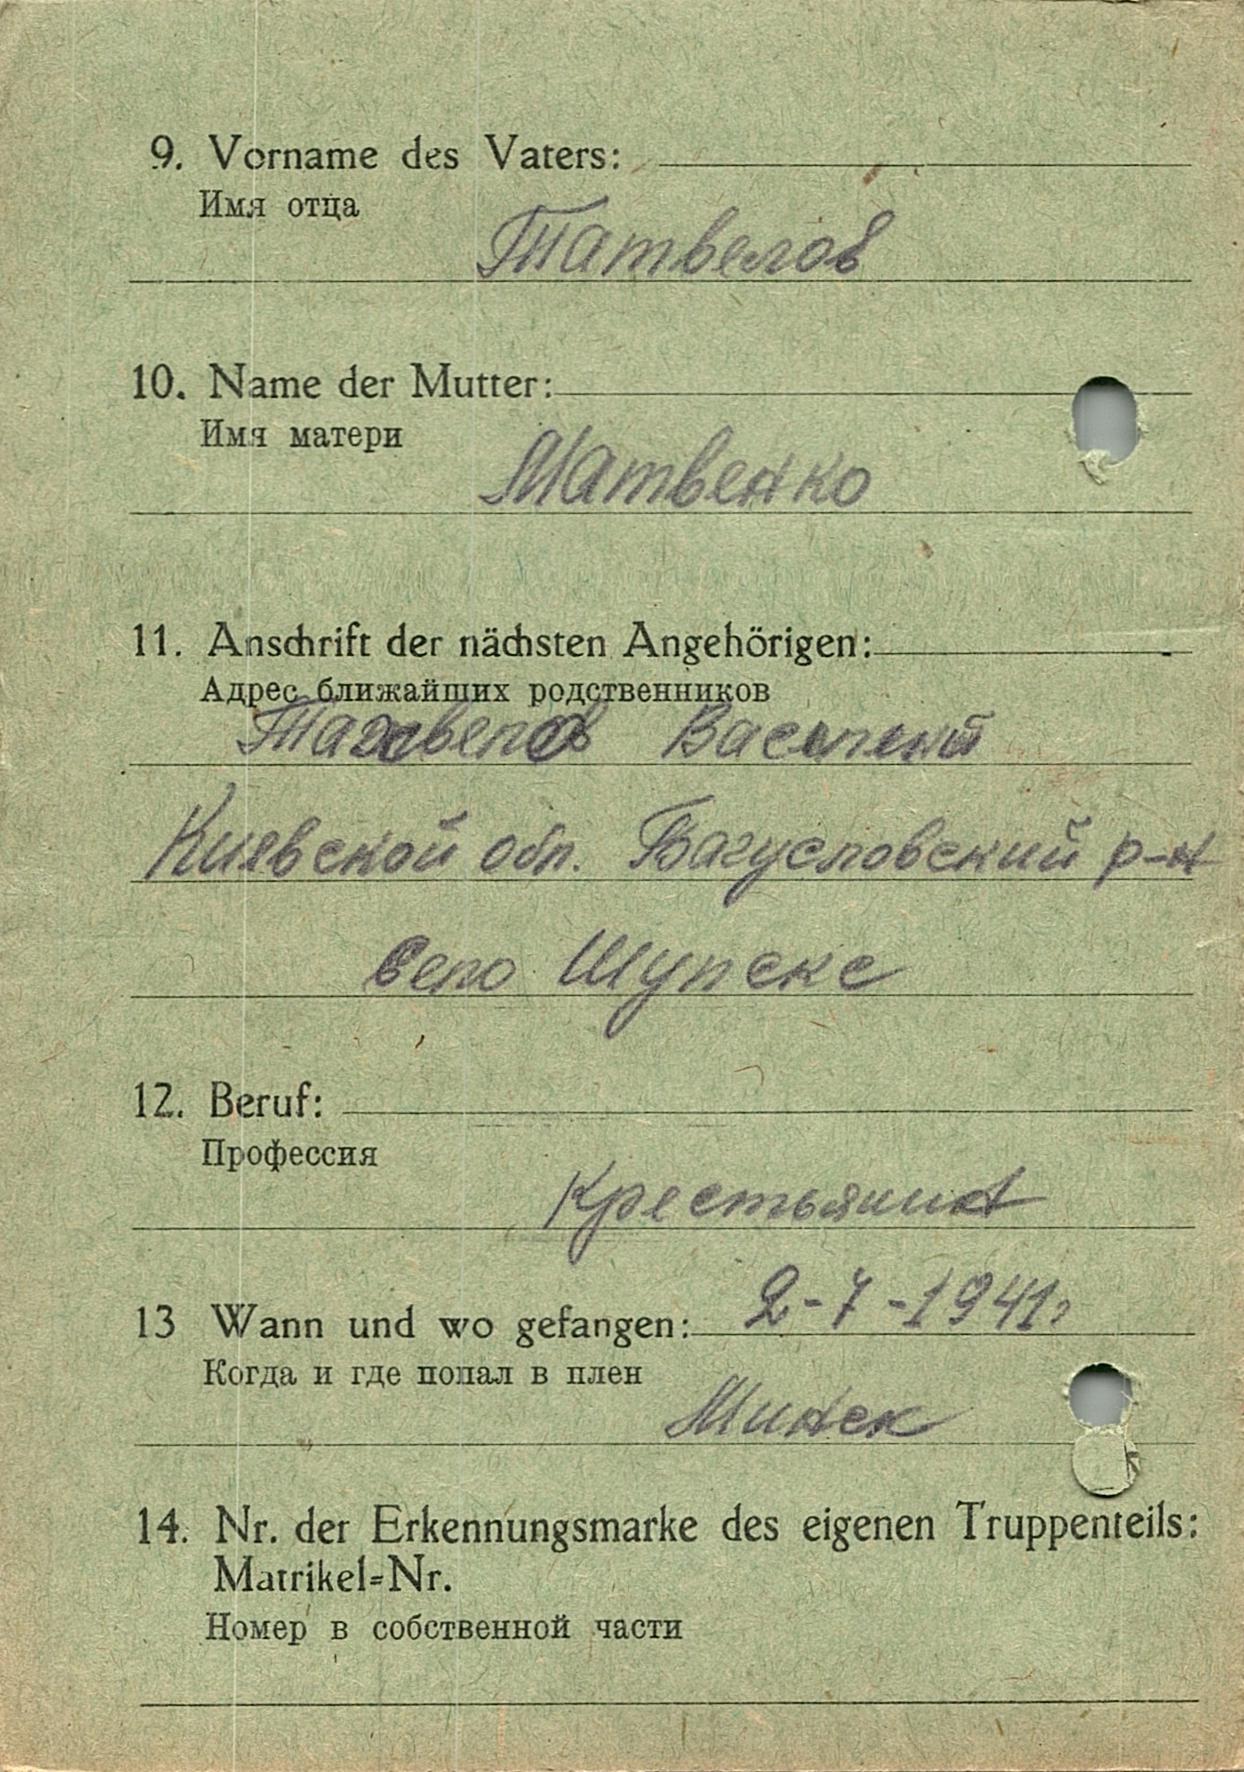 9. Vorname des Vaters:
Имя отца
Татвелов
10. Name der Mutter:
Имя матери
Матвенко
11. Anschrift der nächsten Angehörigen:
Адрес ближайших родственников
Киевской обл. Багусловский р-н
село Шупске
12. Beruf:
Профессия
Крестьянин
13 Wann und wo gefangen: 2-7-1941г
Когда и где попал в плен
Минск
14. Nr. der Erkennungsmarke des eigenen Truppenteils:
Matrikel=Nr.
Номер в собственной части